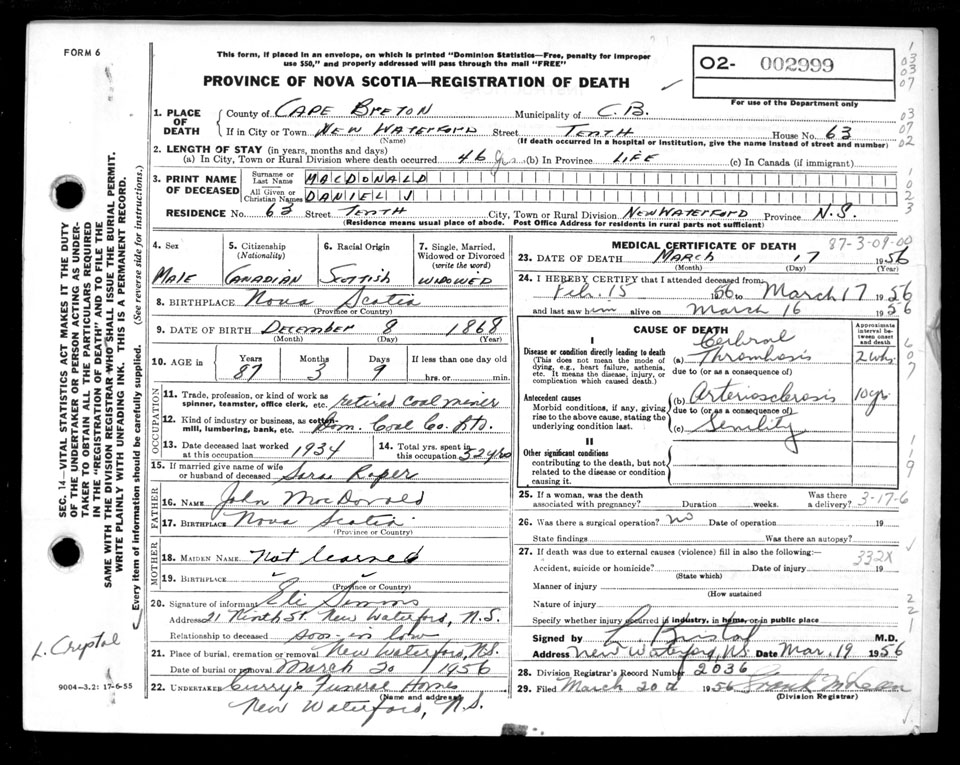 FORM 6
This form, if placed in an envelope, on which is printed "Dominion Statistics—Free, penalty for improper
use $50," and properly addressed will pass through the mail "FREE"
PROVINCE OF NOVA SCOTIA—REGISTRATION OF DEATH
02- 002999
For use of the Department only
1. PLACE OF DEATH
County of CAPE BRETON Municipality of C.B.
If in City or Town NEW WATERFORD Street TENTH House No. 63
(Name) (If death occurred in a hospital or institution, give the name instead of street and number)
2. LENGTH OF STAY (in years, months and days)
(a) In City, Town or Rural Division where death occurred 46 yrs (b) In Province LIFE (c) In Canada (if immigrant)
3. PRINT NAME OF DECEASED
Surname or Last Name MACDONALD
All Given or Christian Names DANIEL J
RESIDENCE No. 63 Street TENTH City, Town or Rural Division NEW WATERFORD Province N.S.
(Residence means usual place of abode. Post Office Address for residents in rural parts not sufficient)
4. Sex MALE
5. Citizenship (Nationality) CANADIAN
6. Racial Origin SCOTISH
7. Single, Married, Widowed or Divorced (write the word) WIDOWED
8. BIRTHPLACE Nova Scotia
(Province or Country)
9. DATE OF BIRTH DECEMBER 8 1868
(Month) (Day) (Year)
10. AGE in Years Months Days If less than one day old
87 3 9 hrs. or min.
OCCUPATION
11. Trade, profession, or kind of work as spinner, teamster, office clerk, etc. retired Coal miner
12. Kind of industry or business, as cotton-mill, lumbering, bank, etc. Dom. Coal Co. Ltd.
13. Date deceased last worked at this occupation 1934
14. Total yrs. spent in this occupation 52 yrs
15. If married give name of wife or husband of deceased Sara Roper
FATHER
16. NAME John MacDonald
17. BIRTHPLACE Nova Scotia
(Province or Country)
MOTHER
18. MAIDEN NAME Not learned
19. BIRTHPLACE
(Province or Country)
20. Signature of informant Eli Simms
Address 21 Ninth St. New Waterford, N.S.
Relationship to deceased son-in law
21. Place of burial, cremation or removal New Waterford, N.S.
Date of burial or removal March 20 1956
22. UNDERTAKER Curry's Funeral Home
(Name and address)
New Waterford, N.S.
MEDICAL CERTIFICATE OF DEATH 87-3-09-00
23. DATE OF DEATH MARCH 17 1956
(Month) (Day) (Year)
24. I HEREBY CERTIFY that I attended deceased from
Feb. 15 1956 to March 17 1956
and last saw him alive on March 16 1956
CAUSE OF DEATH
Approximate interval between onset and death
I
Disease or condition directly leading to death
(This does not mean the mode of dying, e.g., heart failure, asthenia, etc. It means the disease, injury, or complication which caused death.)
(a) Cerbral Thrombosis 2 wks.
due to (or as a consequence of)
Antecedent causes
Morbid conditions, if any, giving rise to the above cause, stating the underlying condition last.
(b) Arteriosclerosis 10 yr.
due to (or as a consequence of)
(c) Senility
II
Other significant conditions
contributing to the death, but not related to the disease or condition causing it.
25. If a woman, was the death associated with pregnancy? Duration weeks. Was there a delivery? 3-17-6
26. Was there a surgical operation? no Date of operation 19
State findings Was there an autopsy?
27. If death was due to external causes (violence) fill in also the following: 332X
Accident, suicide or homicide? Date of injury 19
(State which)
Manner of injury
(How sustained
Nature of injury
Specify whether injury occurred in industry, in home, or in public place
Signed by L. Bristol M.D.
Address New Waterford, N.S. Date Mar. 19 1956
28. Division Registrar's Record Number 2036
29. Filed March 20th 1956
(Division Registrar)
SEC. 14—VITAL STATISTICS ACT MAKES IT THE DUTY
OF THE UNDERTAKER OR PERSON ACTING AS UNDER-
TAKER TO OBTAIN ALL THE PARTICULARS REQUIRED
IN THE "REGISTRATION OF DEATH" AND TO FILE THE
SAME WITH THE DIVISION REGISTRAR WHO SHALL ISSUE THE BURIAL PERMIT.
WRITE PLAINLY WITH UNFADING INK. THIS IS A PERMANENT RECORD.
Every item of information should be carefully supplied. (See reverse side for instructions.)
L. Crystal
9004-3.2: 17-6-55